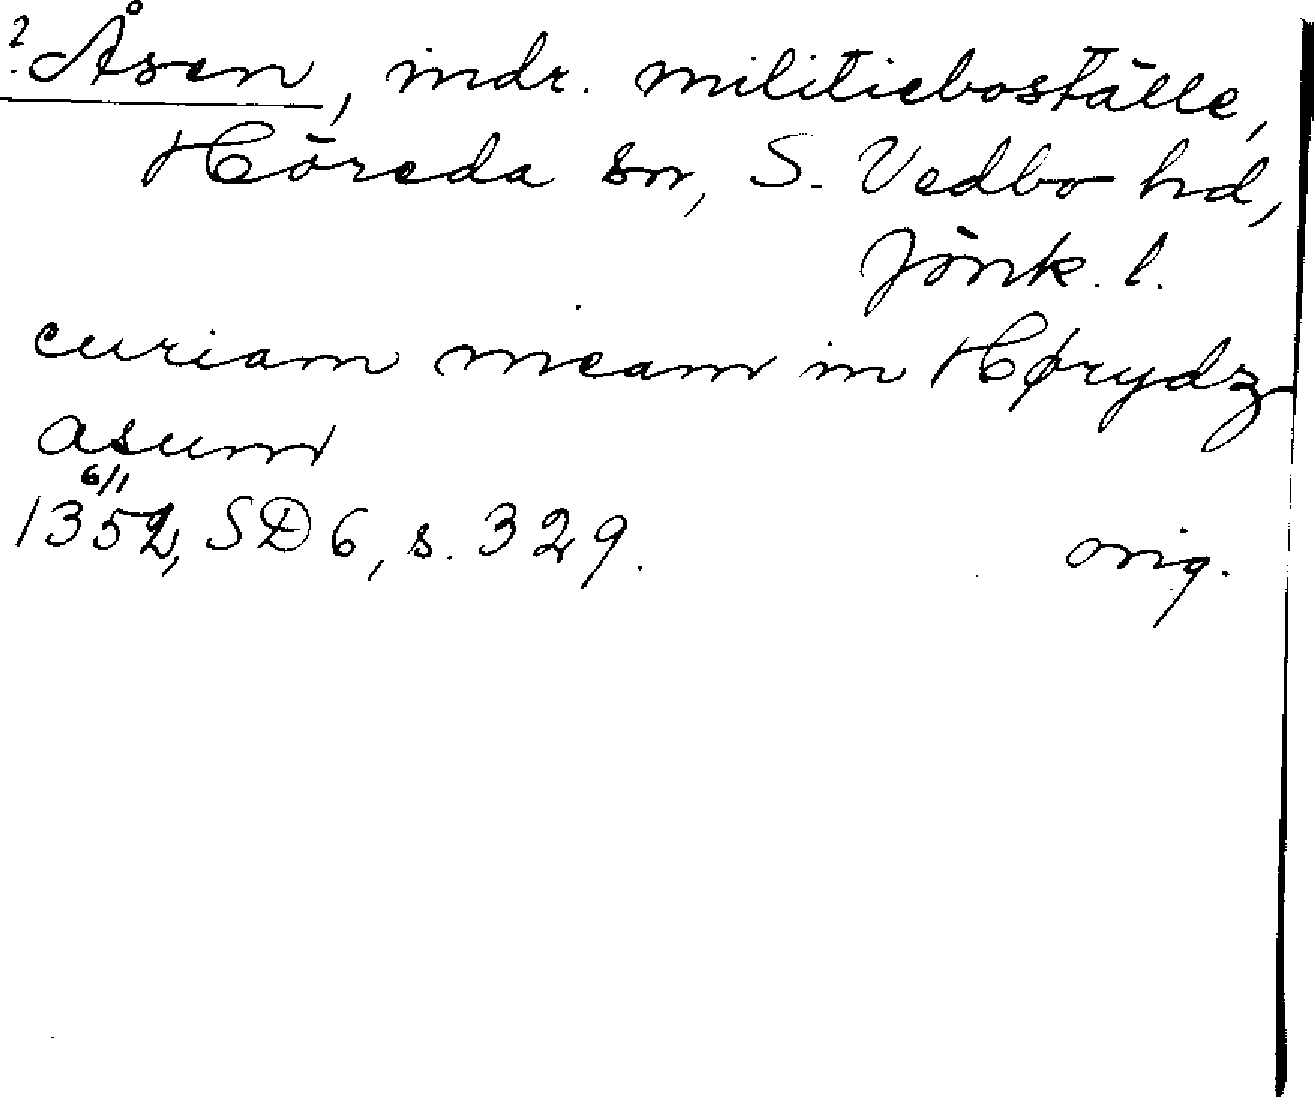 ? Åsen, indr. militieboställe,
Höreda sn, S. Vedbo hd,
Jönk. l.
curiam meam in Hørydz-
asum
1352 6/1, SD 6, s. 329. orig.